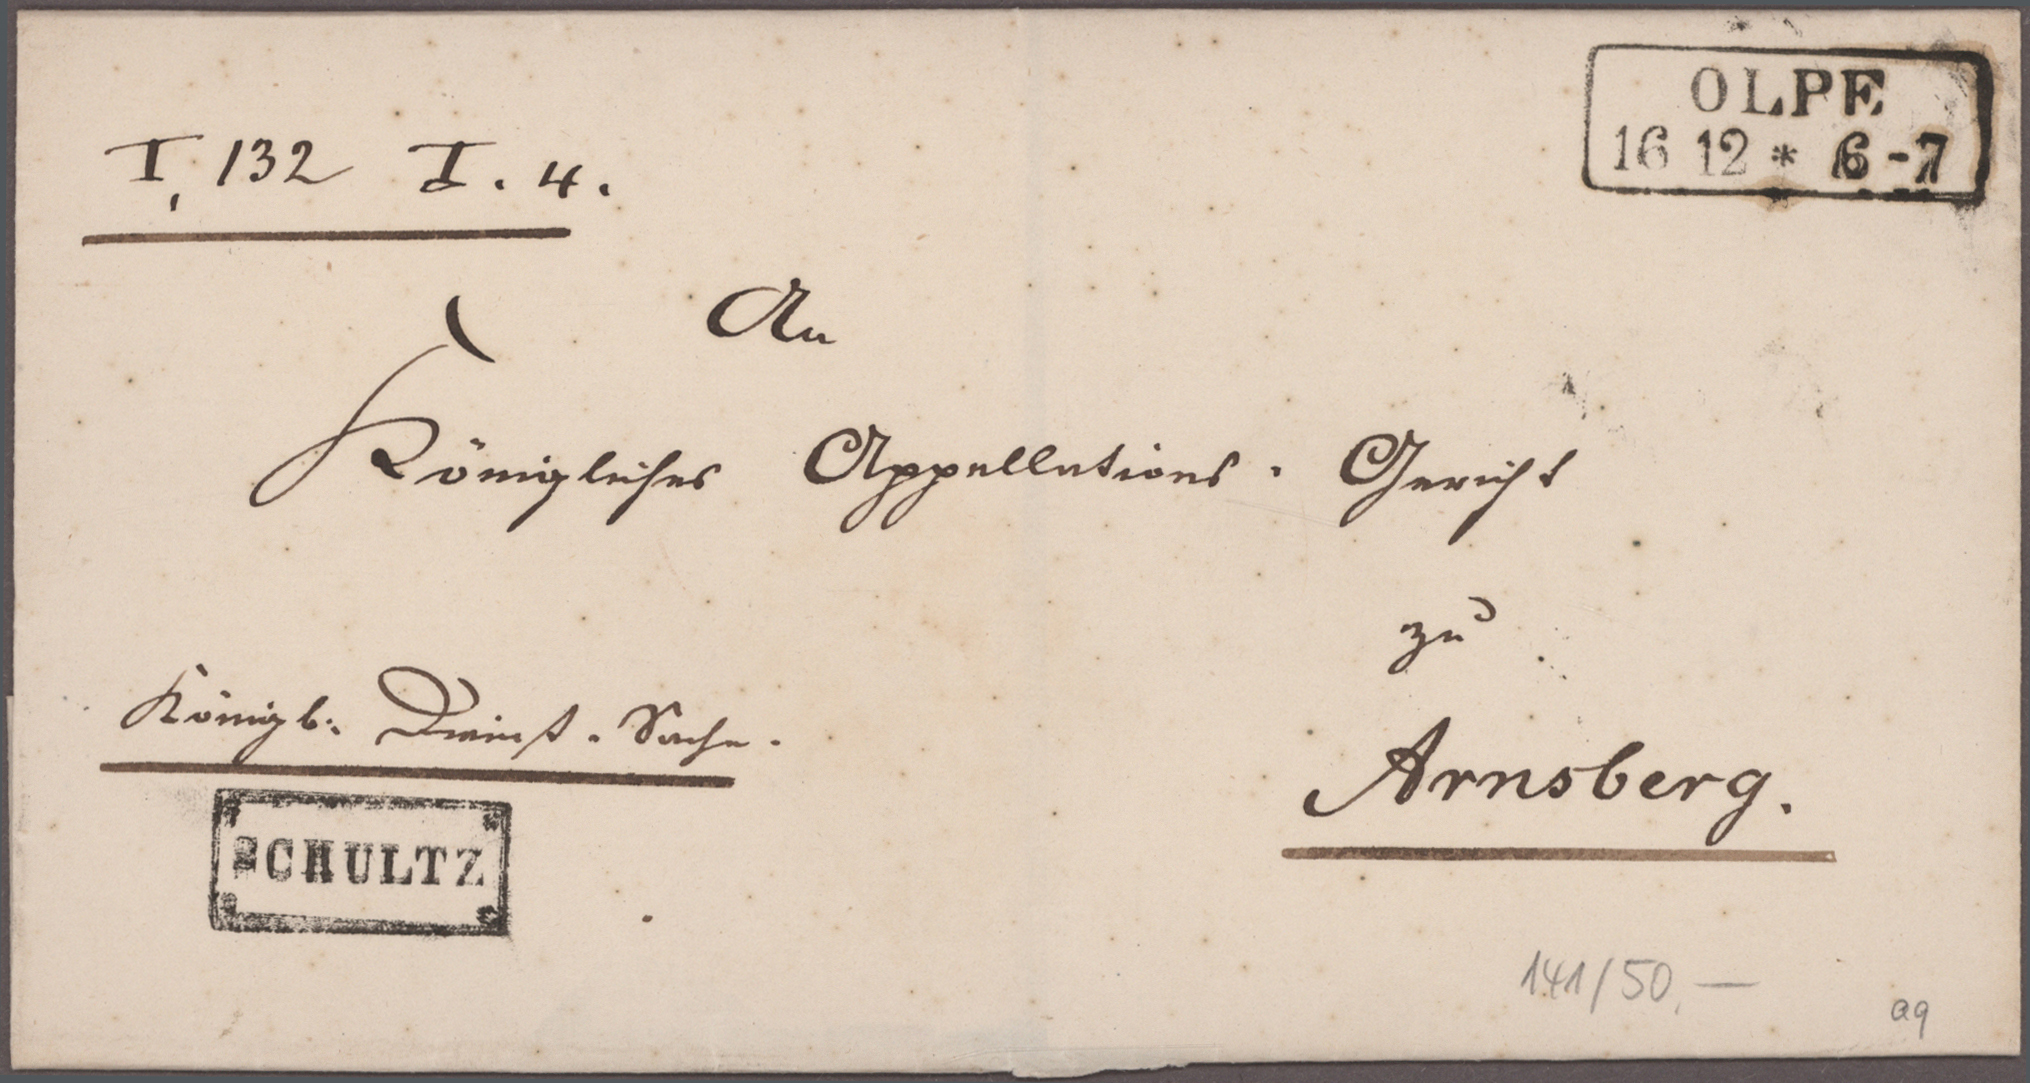 OLPE
16 12 * 6-7
I, 132 I. 4.
An
Königliches Appellations-Gericht
zu
Arnsberg.
Königl. Dienst-Sache.
SCHULTZ
141/50,—